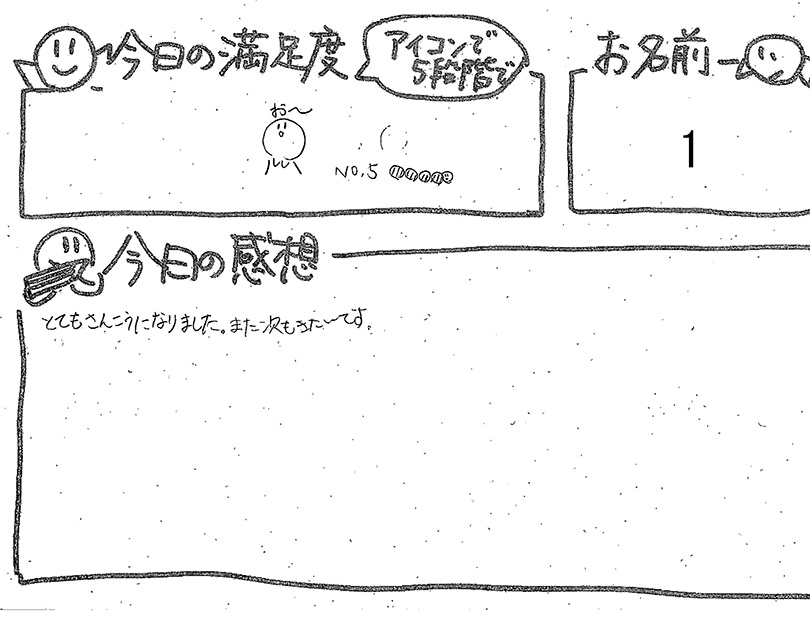 今日の満足度
アイコンで
5段階で
お名前
お〜
NO.5
1
今日の感想
とてもさんこうになりました。また次もきたいです。